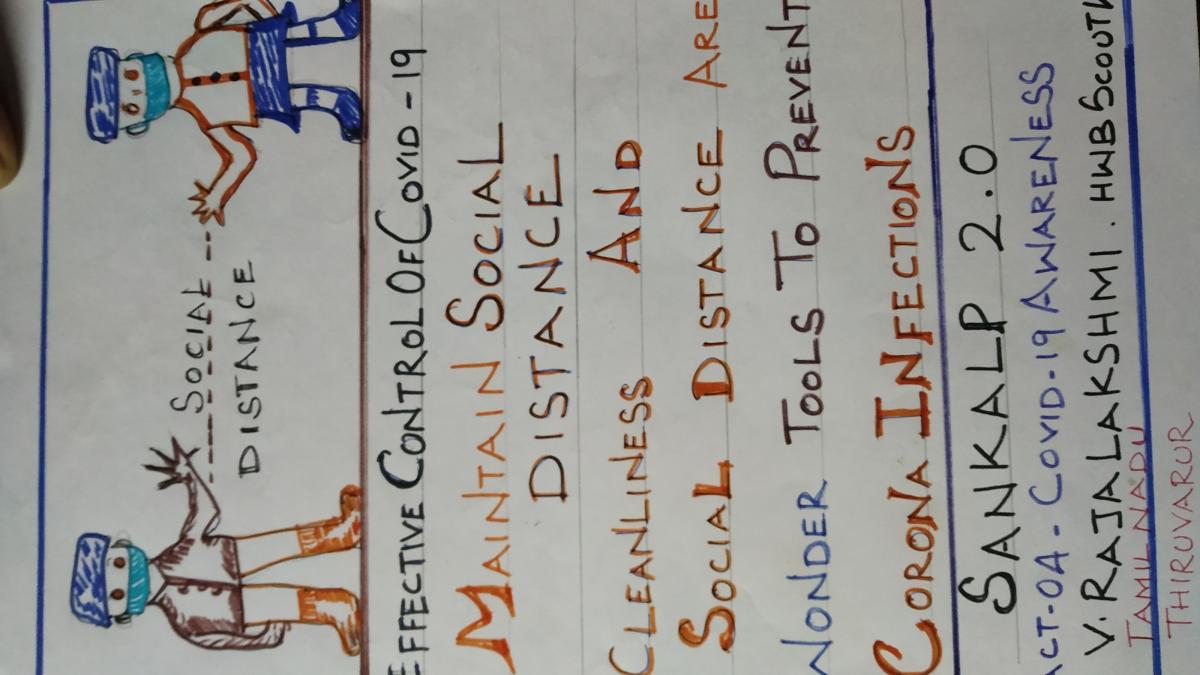 SOCIAL
DISTANCE
EFFECTIVE CONTROL OF COVID-19
MAINTAIN SOCIAL
DISTANCE
CLEANLINESS AND
SOCIAL DISTANCE ARE
WONDER TOOLS TO PREVENT
CORONA INFECTIONS
SANKALP 2.0
ACT-04-COVID-19 AWARENESS
V.RAJALAKSHMI.HWB SCOUT
TAMILNADU
THIRUVARUR